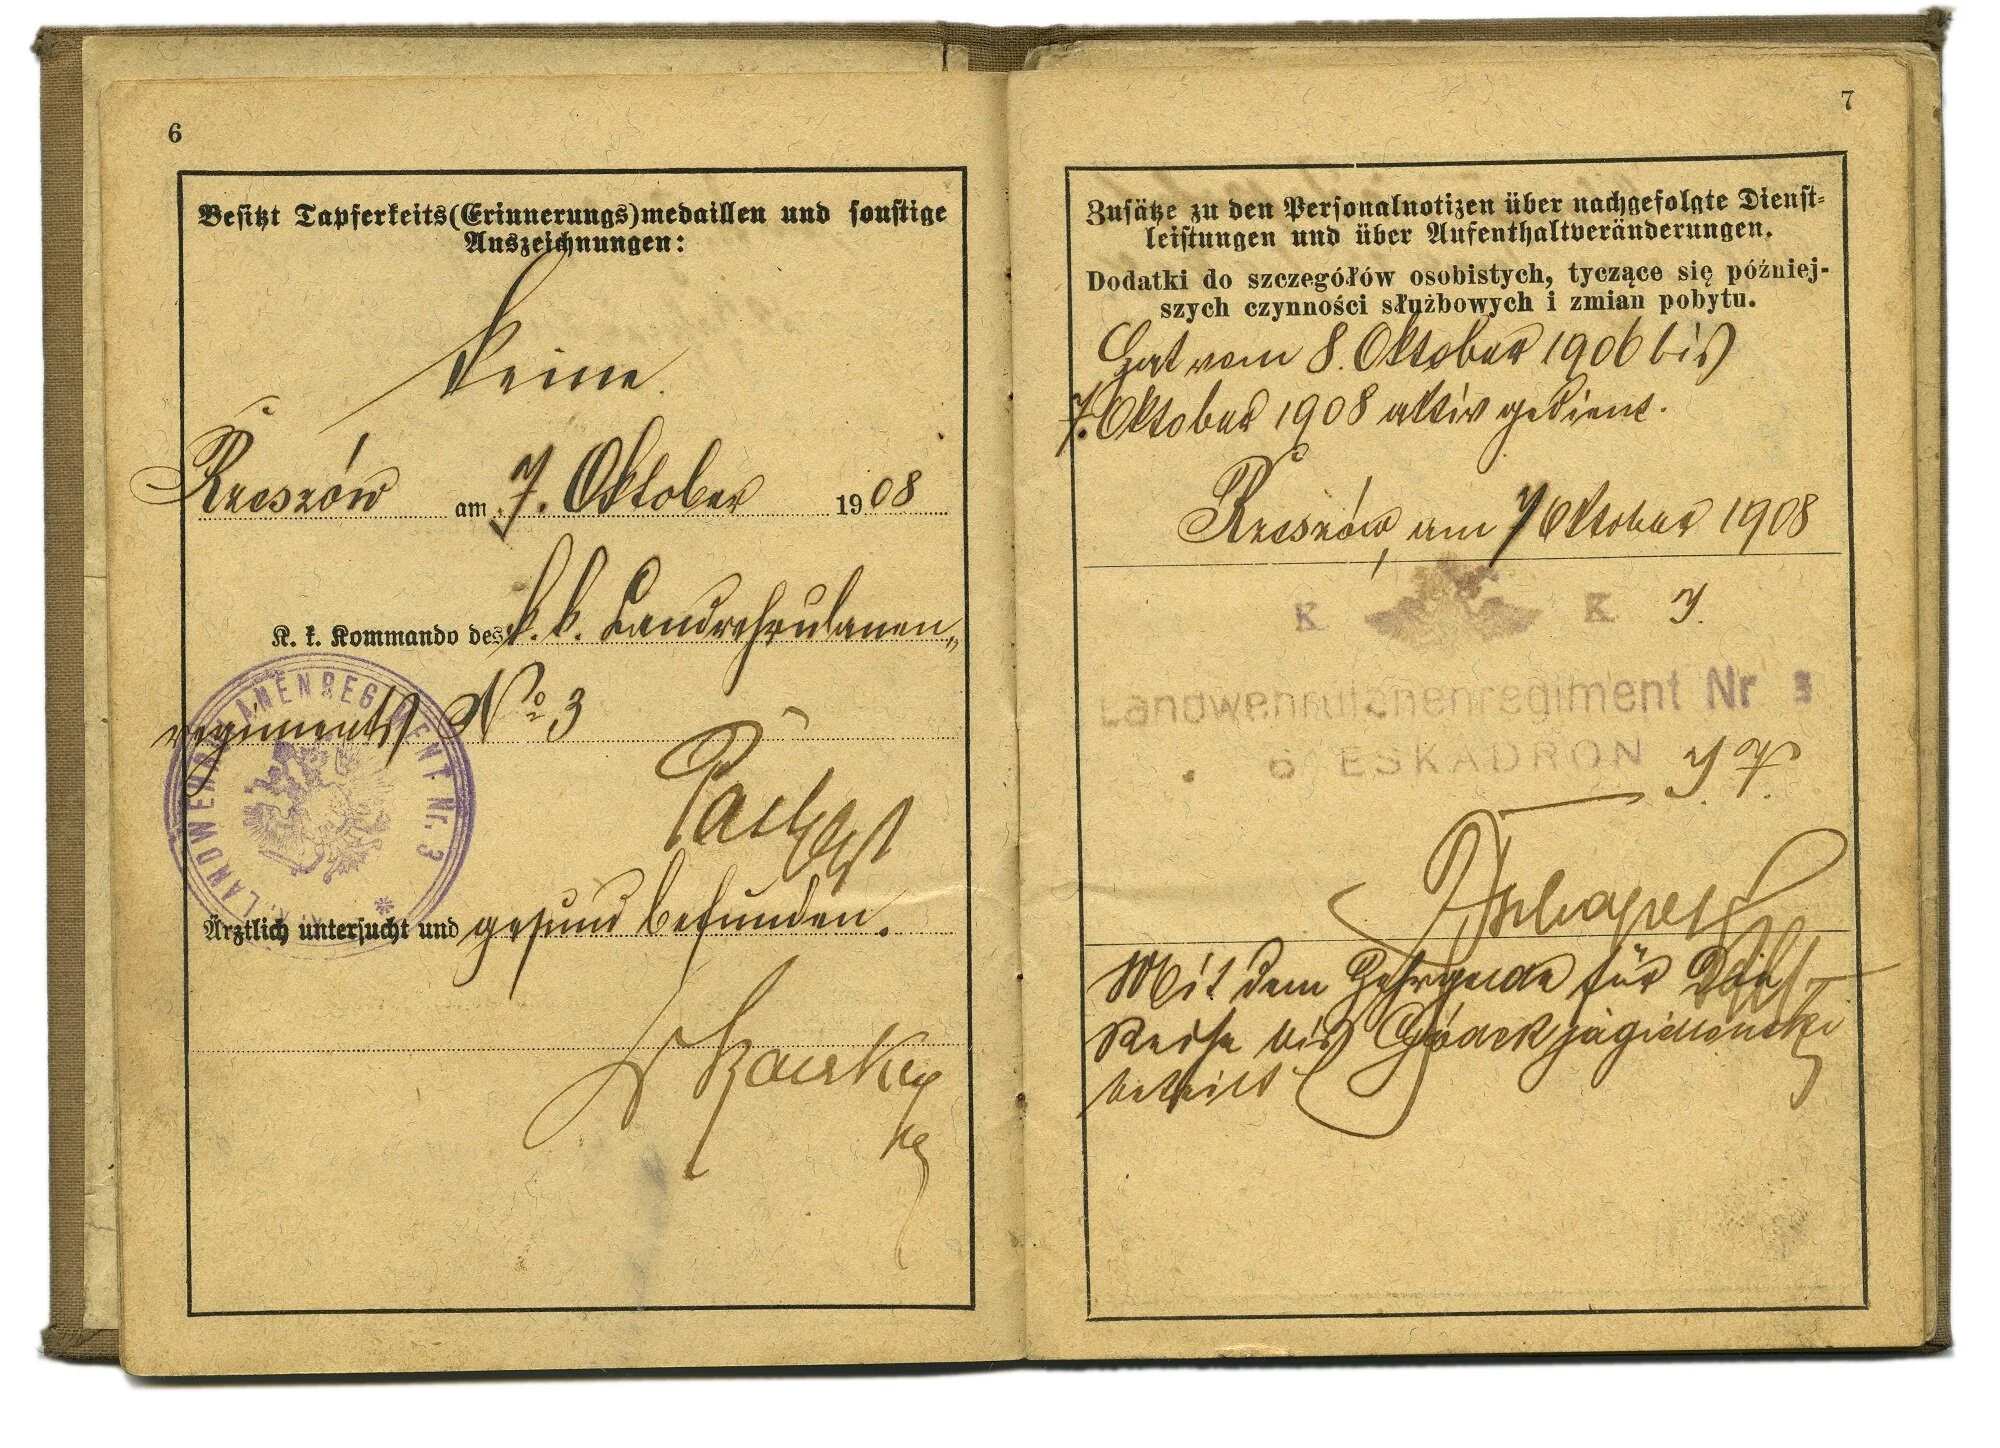 6
Besitzt Tapferkeits(Erinnerungs)medaillen und sonstige
Auszeichnungen:
keine.
Rzeszów am 7. Oktober 1908
K. k. Kommando des k. k. Landwehrulanen„
regiments No 3
K. K. LANDWEHRULANENREGIMENT Nr. 3
Ärztlich untersucht und gesund befunden.
7
Zusätze zu den Personalnotizen über nachgefolgte Dienst-
leistungen und über Aufenthaltveränderungen.
Dodatki do szczegółów osobistych, tyczące się później-
szych czynności służbowych i zmian pobytu.
Hat vom 8. Oktober 1906 bis
7. Oktober 1908 aktiv gedient.
Rzeszów, am 7 Oktober 1908
K K
Landwehrulanenregiment Nr 3
6 ESKADRON
Mit dem Zehrgelde für die
Reise bis Gródek jagielloński
beteilt